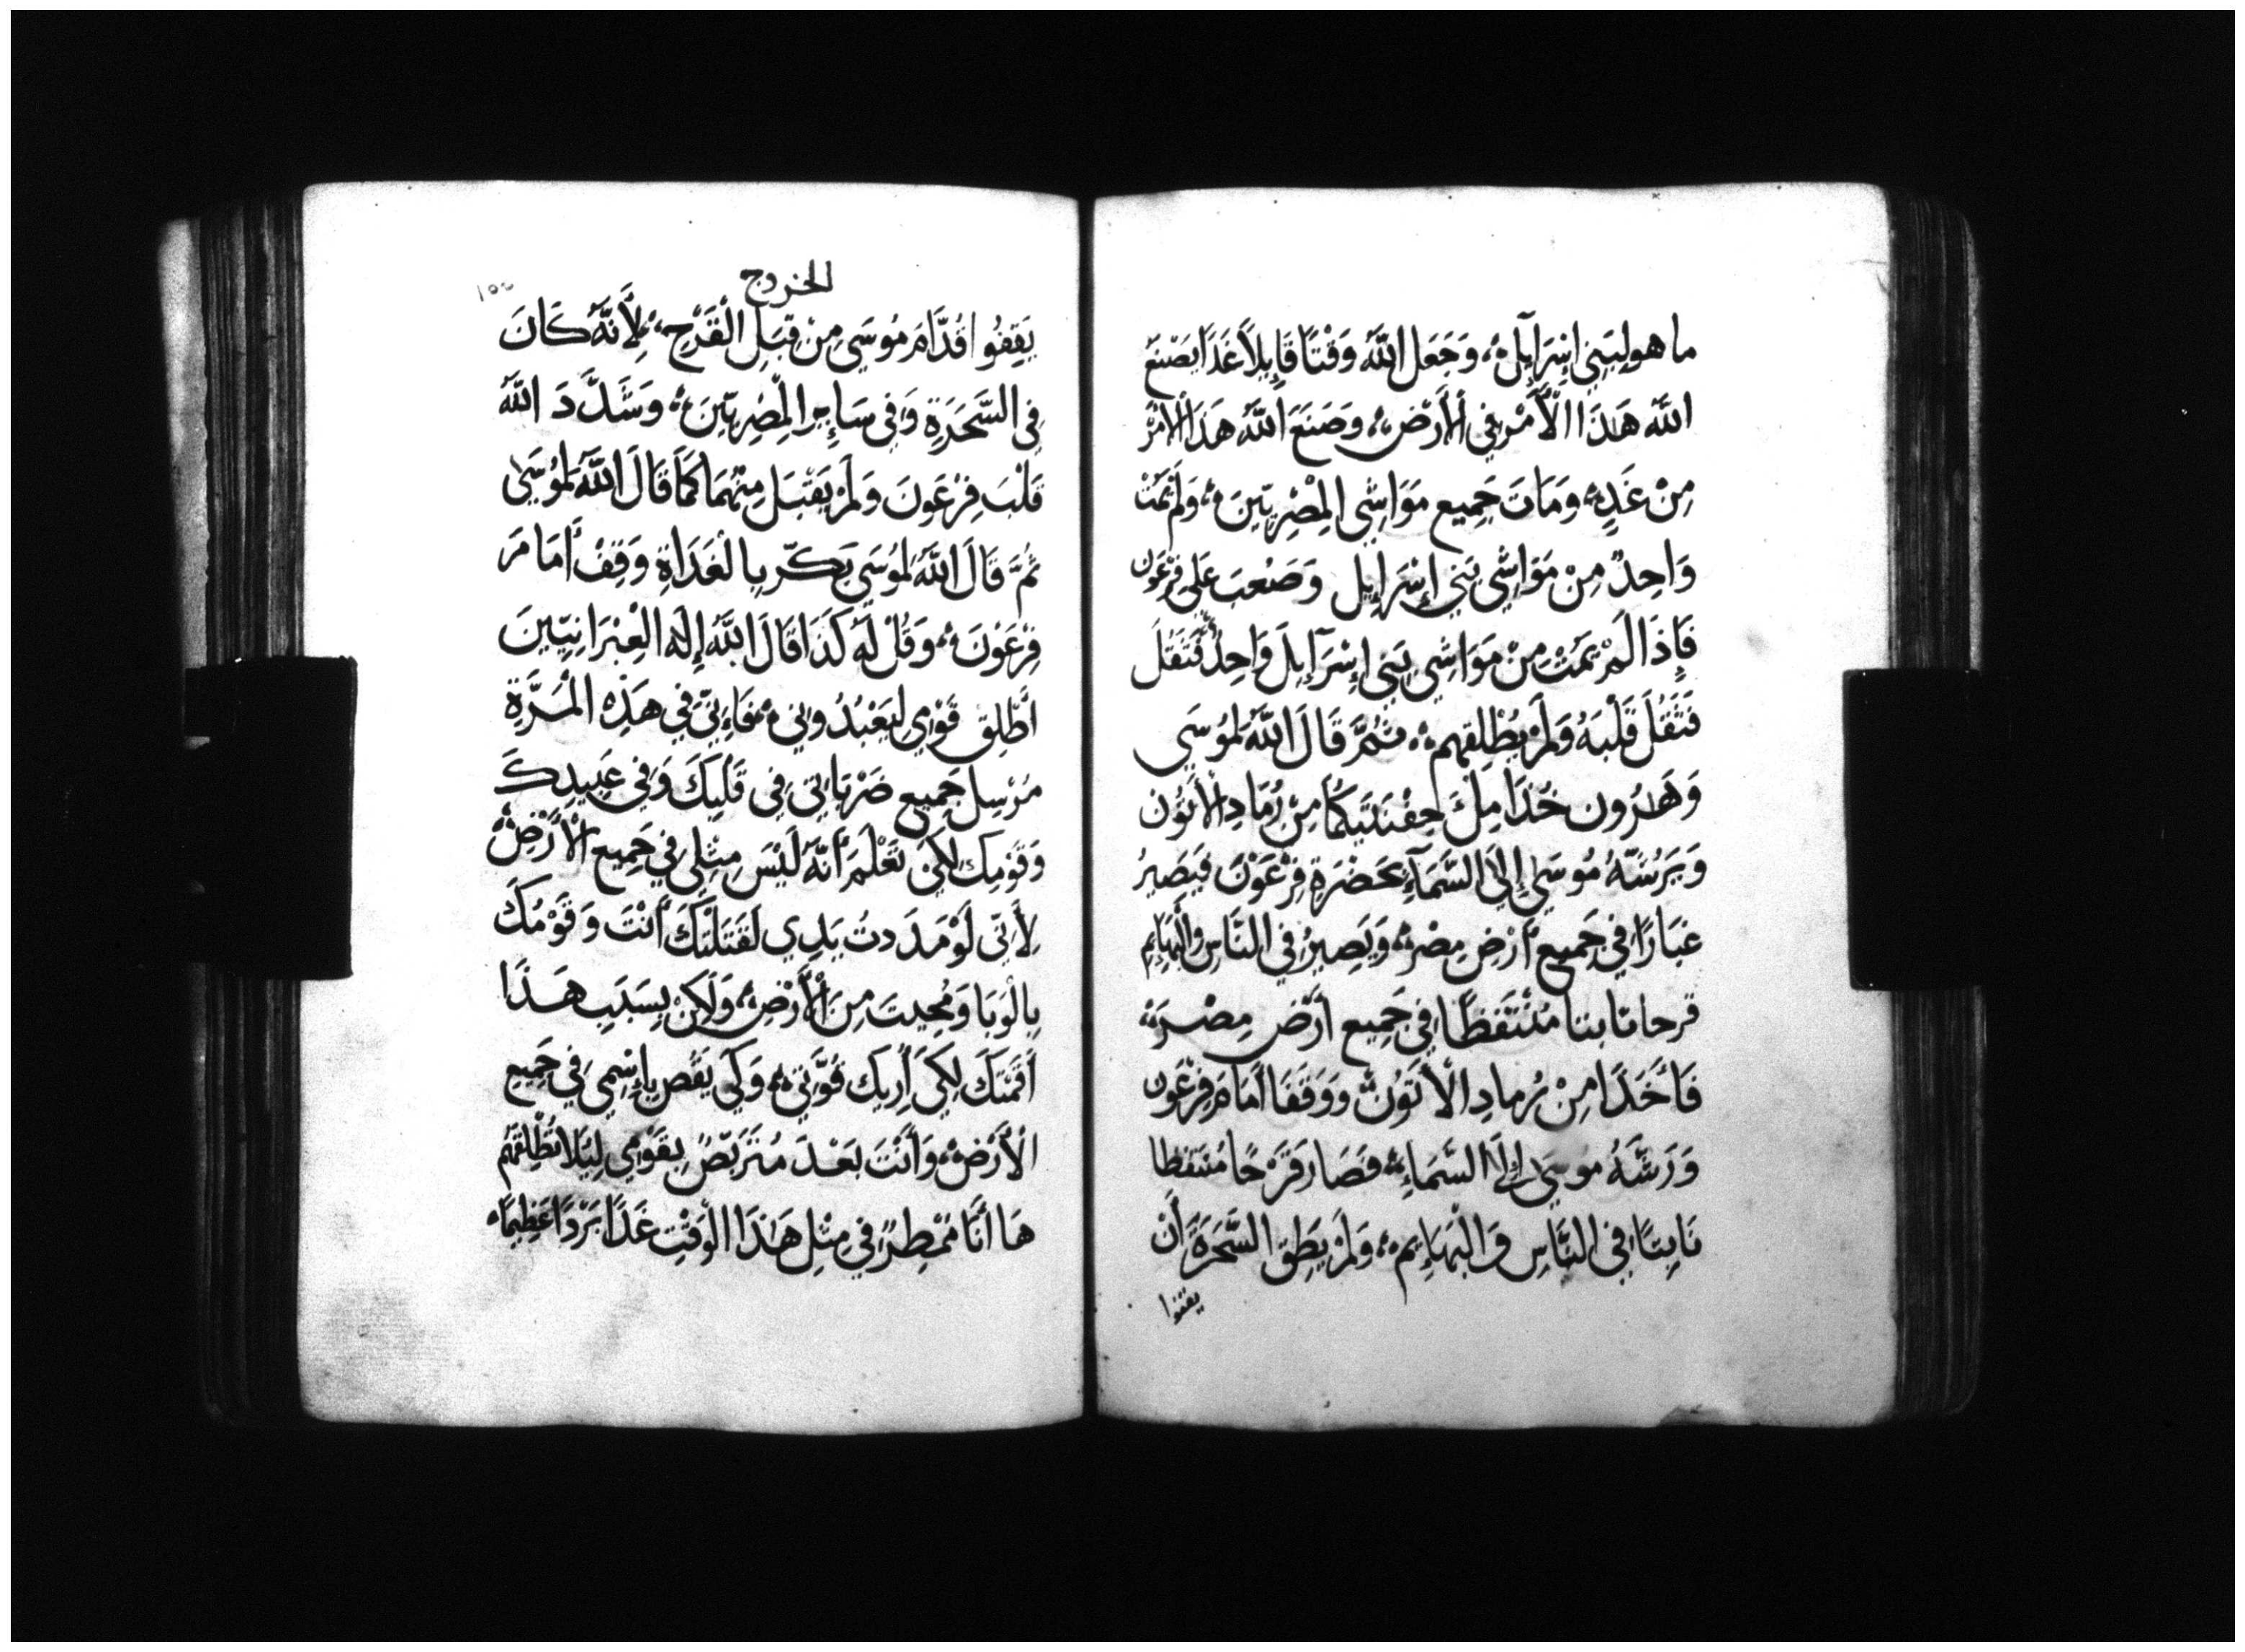 ما هو لِبَنِي اِسْرَآيِلَ، وَجَعَل اللَّهُ وَقْتًا قَابِلاً غَدًا يَصْنَع
اللَّه هَذَا الْأَمْر فِي الْأَرْضِ، وَصَنَعَ اللَّه هَذَا الْأَمْرَ
مِنْ غَدٍ، وَمَاتَ جَمِيع مَوَاشِي الْمِصْرِيّينَ، وَلَمْ يَمُتْ
وَاحِدٌ مِنْ مَوَاشِي بَنِي إِسْرَايِل وَصَعُبَ عَلَى فِرْعَون
فَإِذَا لَمْ يَمُتْ مِنْ مَوَاشِي بَنِي إِسْرَآيِلَ وَاحِدٌ فَتَقُلَ
فَتَقُلَ قَلْبَهُ وَلَمْ يُطْلِقهم، ثُمَّ قَالَ اللَّهُ لِمُوسَى
وَهَرُون خُذَا مِلَ حِفْنَتَيكُمَا مِنْ رُمَادِ الْأَتُون
وَيَرُشّهُ مُوسَى إِلَى السَّمَآءِ بَحَضْرَةِ فِرْعَوْنَ فَيَصِيرُ
غبَارًا فِي جَمِيع أرْضِ مِصْرَ، وَيَصِيرُ فِي النَّاسِ وَالْبَهَايِم
قرحا نابتا مُنْتَفَظًا فِي جَمِيع أَرْض مِصْرَ،
فَأَخَذَا مِنْ رُمادِ الْأَتَوُن وَوَقَفَا أَمَامَ فِرْعَون
وَرَشَّهُ مُوسَى إِلَى السَّمَاءِ، فَصَار قَرْحًا مُنْتَفَظا
نَابِتًا فِي النَّاسِ وَالْبَهَايِم، وَلَمْ يطِق السَّحَرَةَ أَنْ
يقفوا
الخروج
يَقِفُوا قُدَّامَ مُوسَى مِنْ قِبَلِ الْقَرْحِ، لِأَنَّهُ كَانَ
فِي السَّحَرَةِ وَفِي سَايِرِ الْمِصْرِيّينَ، وَشَدَّدَ اللَّهُ
قَلْبَ فِرْعَونَ وَلَمْ يَقْبَل مِنْهُمَا كَمَا قَالَ اللَّهُ لِمُوسَى
ثُمَّ قَالَ اللَّهُ لِمُوسَى بَكّر بِالْغَدَاةِ وَقِفْ أَمَامَ
فِرْعَوْنَ، وَقُلْ لَهُ كَذَا قَالَ اللَّهُ إِلَه الْعِبْرَانِيّينَ
أَطْلِق قَوْمِي لِيَعْبُدُونِي، فَاءِنِّي فِي هَذِهِ الْمَرَّةِ
مُرْسِل جَمِيع ضَرْبَاتِي فِي قَلْبِكَ وَفِي عَبِيدِكَ
وَقَوْمِك لِكَي تَعْلَمَ أَنَّهُ لَيْسَ مِثْلِي فِي جَمِيع الْأَرْضِ،
لِأَنِّي لَوْ مَدَدتُ يَدِي لَقَتَلْتُكَ أَنْتَ وَقَوْمُكَ
بِالْوَبَا وَمُحِيتَ مِنَ الْأَرْضِ، وَلَكِنْ بِسَبَبِ هَذَا
أَقَمْتكَ لِكَي أُرِيك قُوَّتِي، وَكَي يَقُص بِإِسْمِي فِي جَمِيع
الْأَرْض، وَأَنْتَ بَعْدَ مُتَرَبِّصٌ بِقَوْمِي لِيَلا تُطْلِقَهُم
هَا أَنَا مُمْطِرٌ فِي مِثْلِ هَذَا الْوَقْتِ غَدًا بَرْدًا عَظِيمًا،